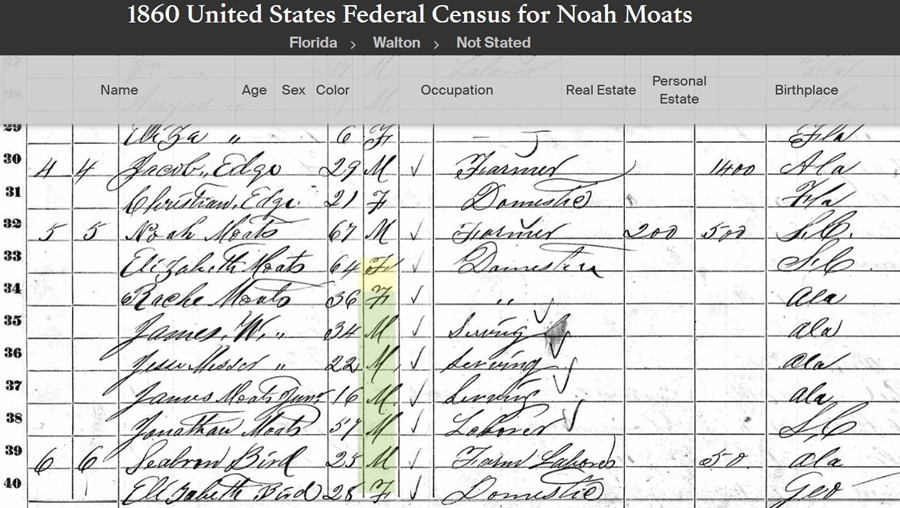 1860 United States Federal Census for Noah Moats
Florida > Walton > Not Stated
Name Age Sex Color Occupation Real Estate Personal Estate Birthplace
29 Eliza " 6 F Fla
30 4 4 Jacob, Edge 29 M ✓ Farmer 1400 Ala
31 Christian, Edge 21 F Domestic Fla
32 5 5 Noah Moats 67 M ✓ Farmer 200 500 S.C.
33 Elizabeth Moats 64 F ✓ Domestic S.C
34 Moats 36 F ✓ " Ala
35 James, W. " 34 M ✓ Serving Ala
36 Jesse Messer " 22 M ✓ Serving Ala
37 James Moats 16 M ✓ Serving Ala
38 Jonathan Moats 57 M ✓ Laborer S.C
39 6 6 Seabron Bird 25 M ✓ Farm Laborer 50. Ala
40 Elizabeth, Bird 28 F ✓ Domestic Geo